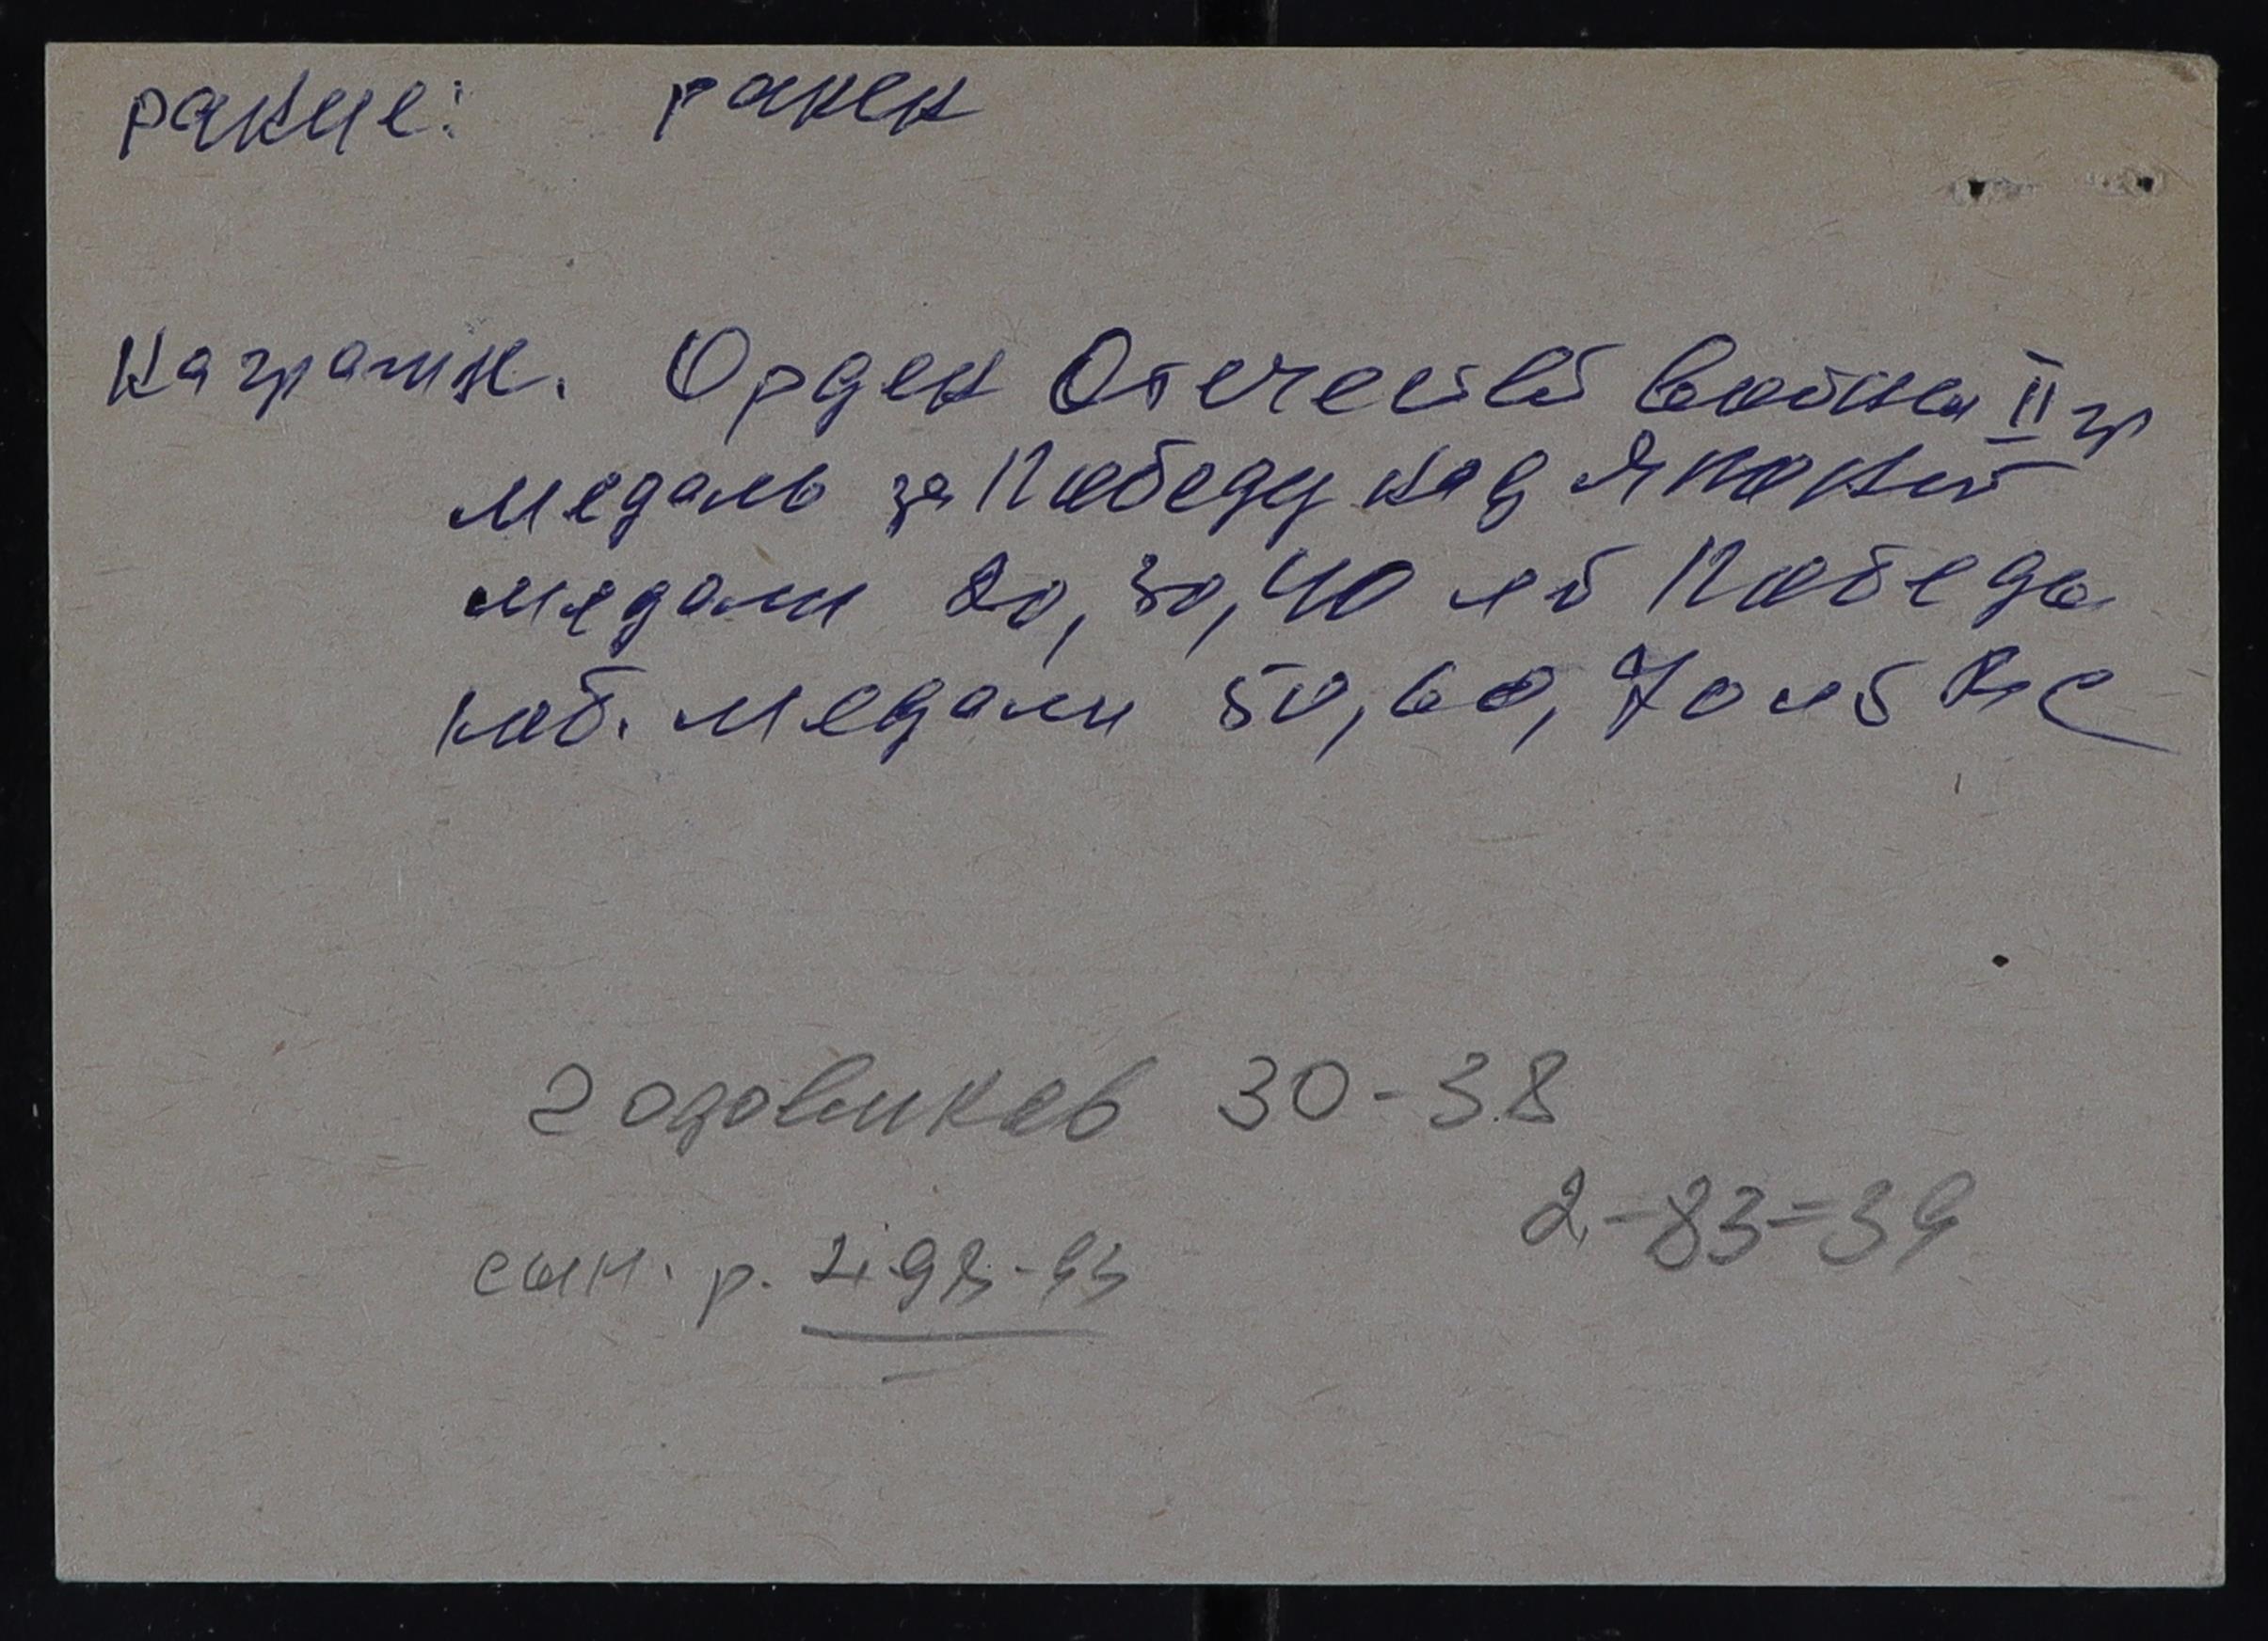 ранне: ранен
Награжд. Орден Отечеств войны II гр
медаль за Победу над Японий
медали 20, 30, 40 лет Победы
юб. медали 50, 60, 70 лет ВС
годовиков 30-38
2-83-39
сын. р.